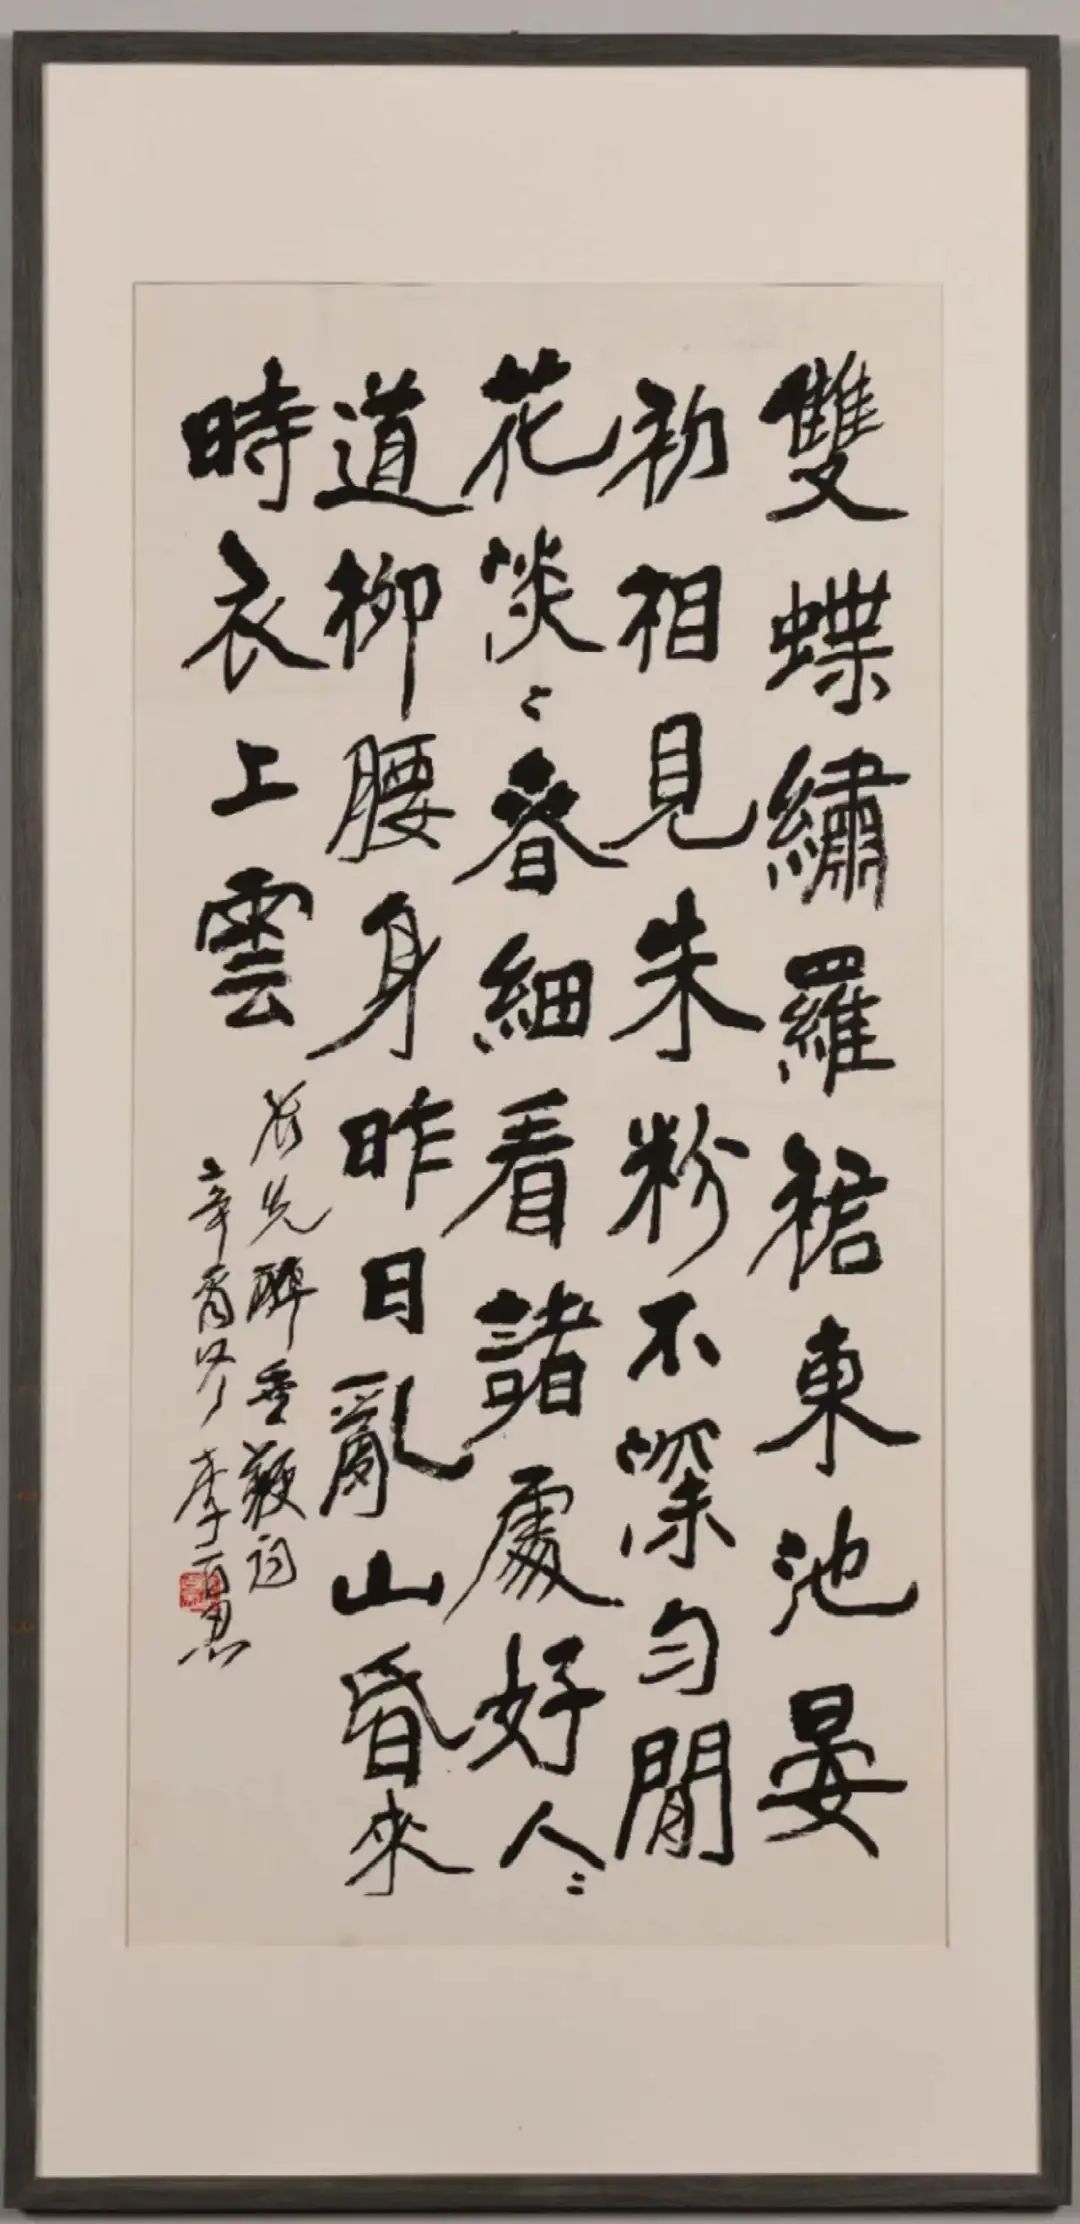 雙蝶繡羅裙東池晏
初相見朱粉不深勻閒
花淡〻春細看諸處好人〻
道柳腰身昨日亂山昏來
時衣上雲
張先醉垂鞭詞
辛酉冬李百忍